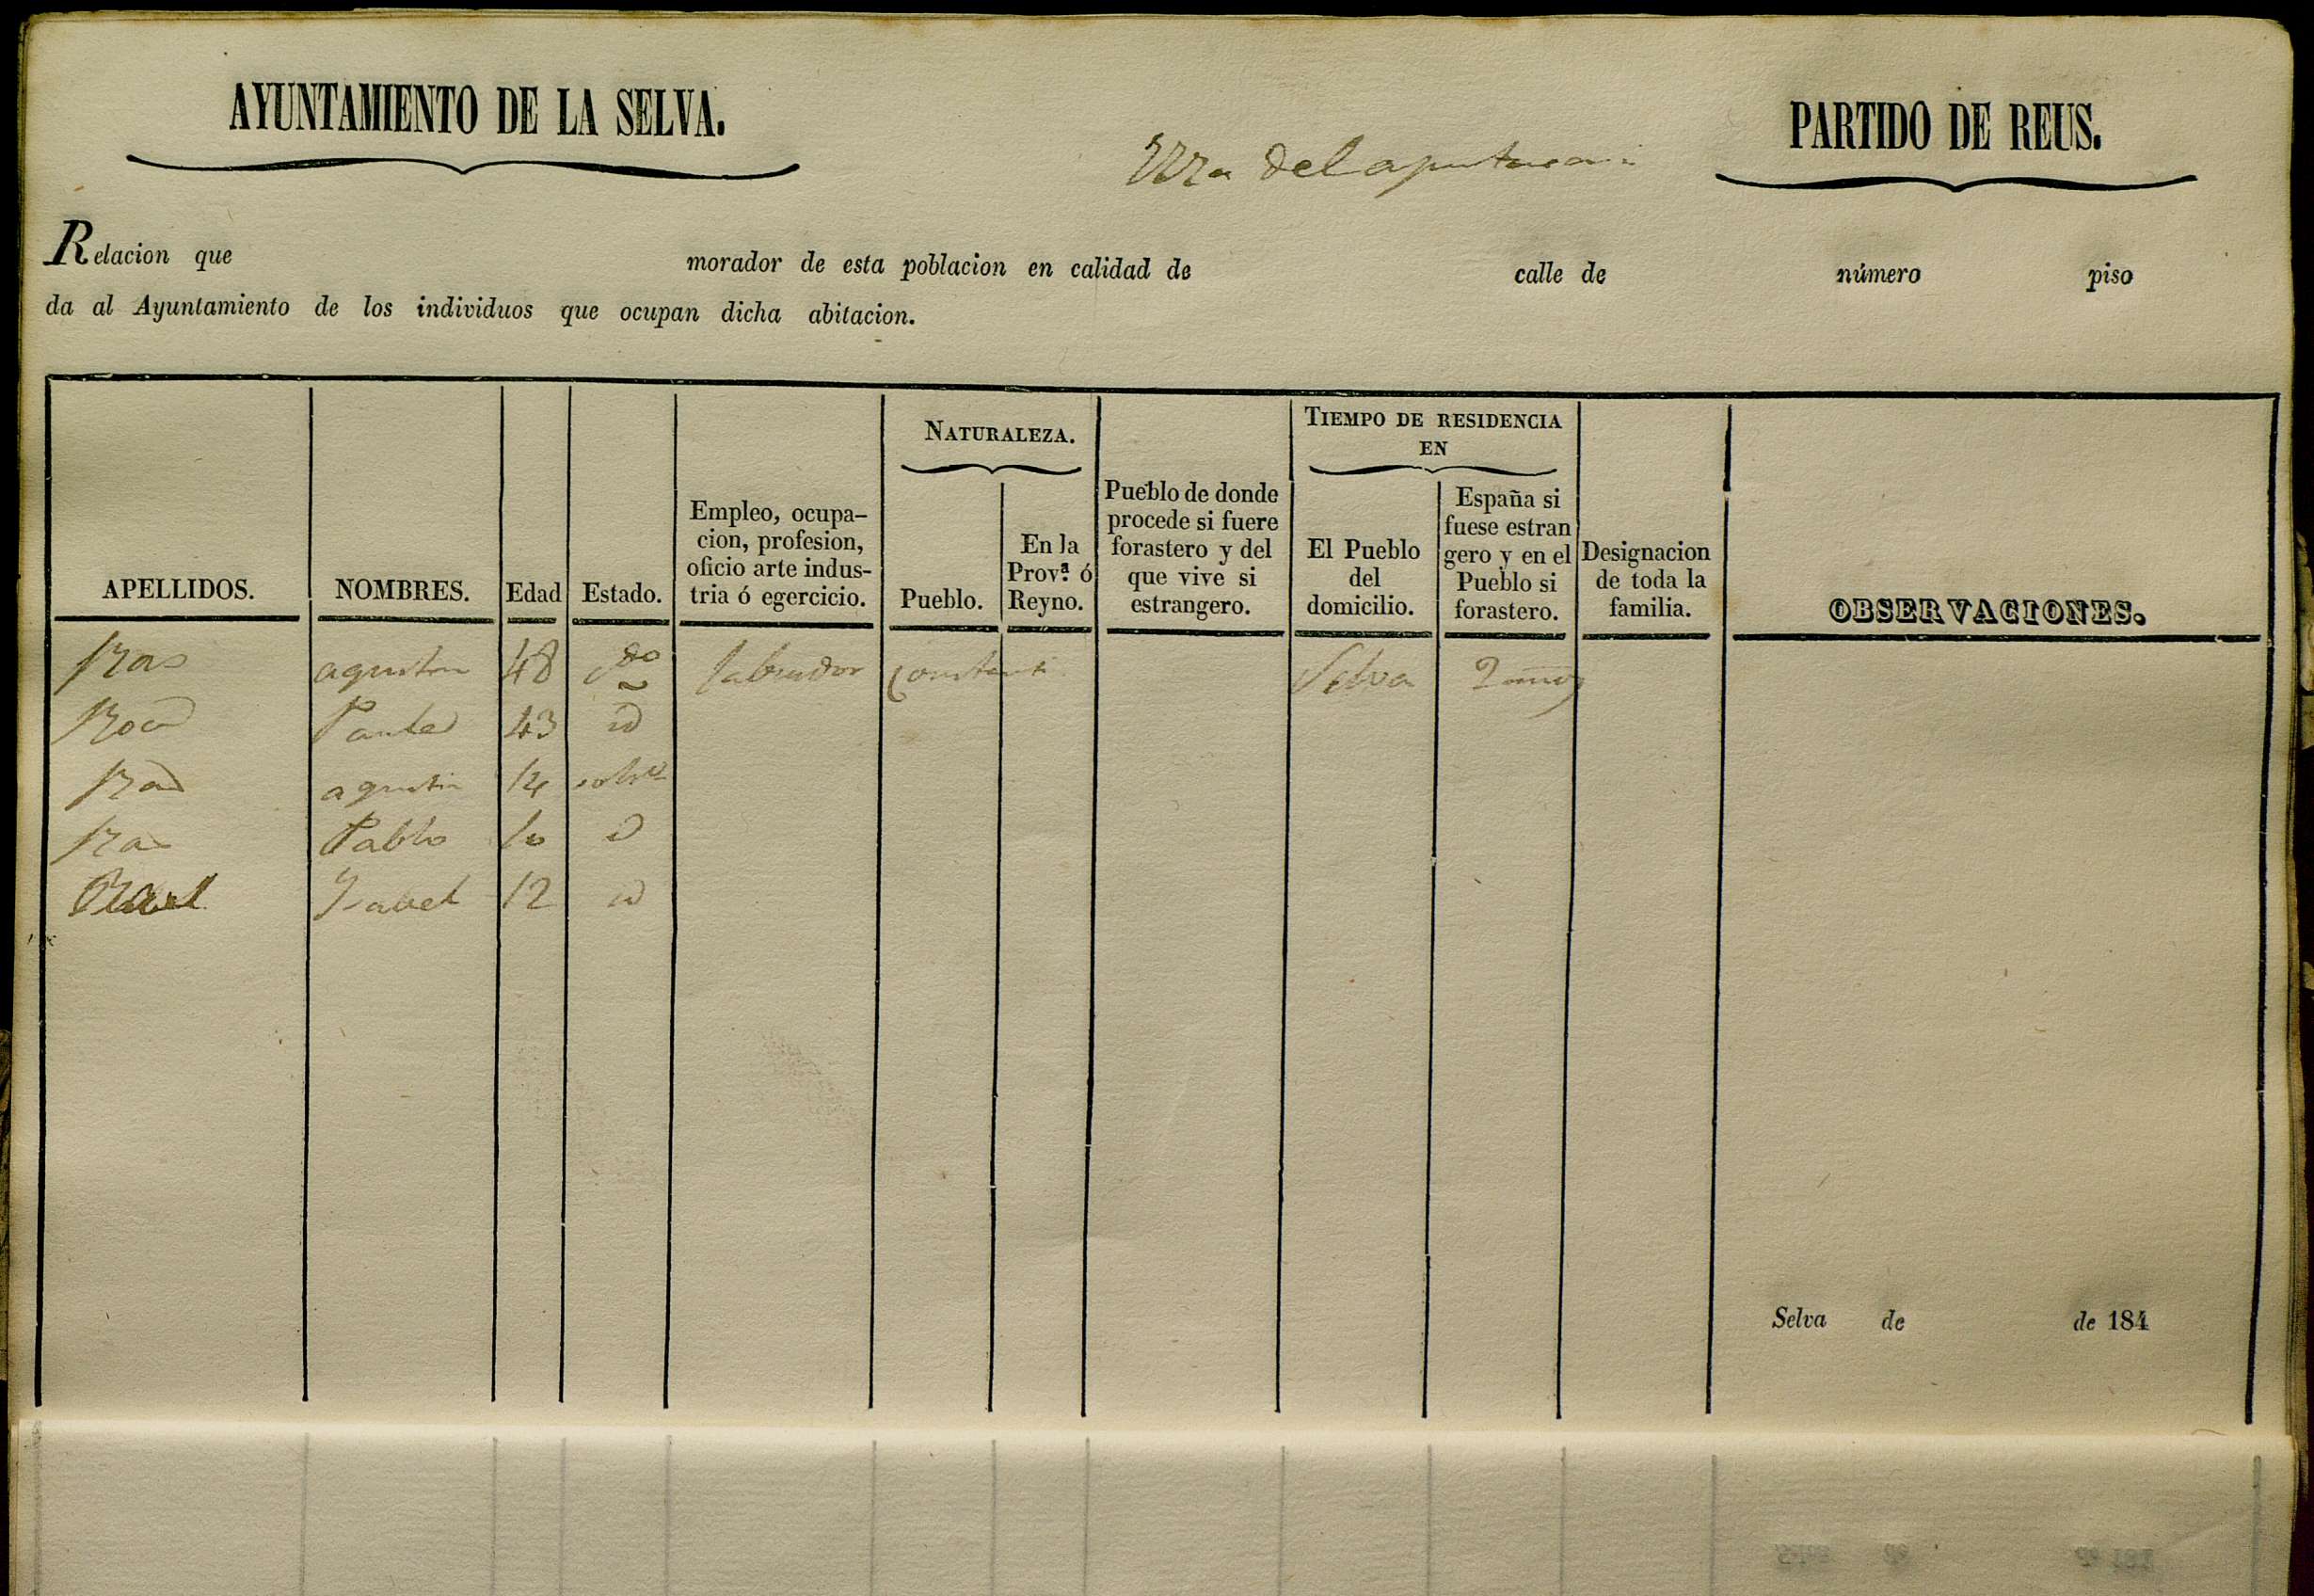 AYUNTAMIENTO DE LA SELVA.
PARTIDO DE REUS.
Relacion que morador de esta poblacion en calidad de calle de número piso
da al Ayuntamiento de los individuos que ocupan dicha abitacion.
APELLIDOS.
NOMBRES.
Edad
Estado.
Empleo, ocupa-
cion, profesion,
oficio arte indus-
tria ó egercicio.
NATURALEZA.
Pueblo.
En la
Prov.ª ó
Reyno.
Pueblo de donde
procede si fuere
forastero y del
que vive si
estrangero.
TIEMPO DE RESIDENCIA
EN
El Pueblo
del
domicilio.
España si
fuese estran
gero y en el
Pueblo si
forastero.
Designacion
de toda la
familia.
OBSERVACIONES.
Ras agustin 48 labrador Constanti Selva
43 id
agustin 14
Ras Pablo 10 id
Ysabel 12 id
Selva de de 184